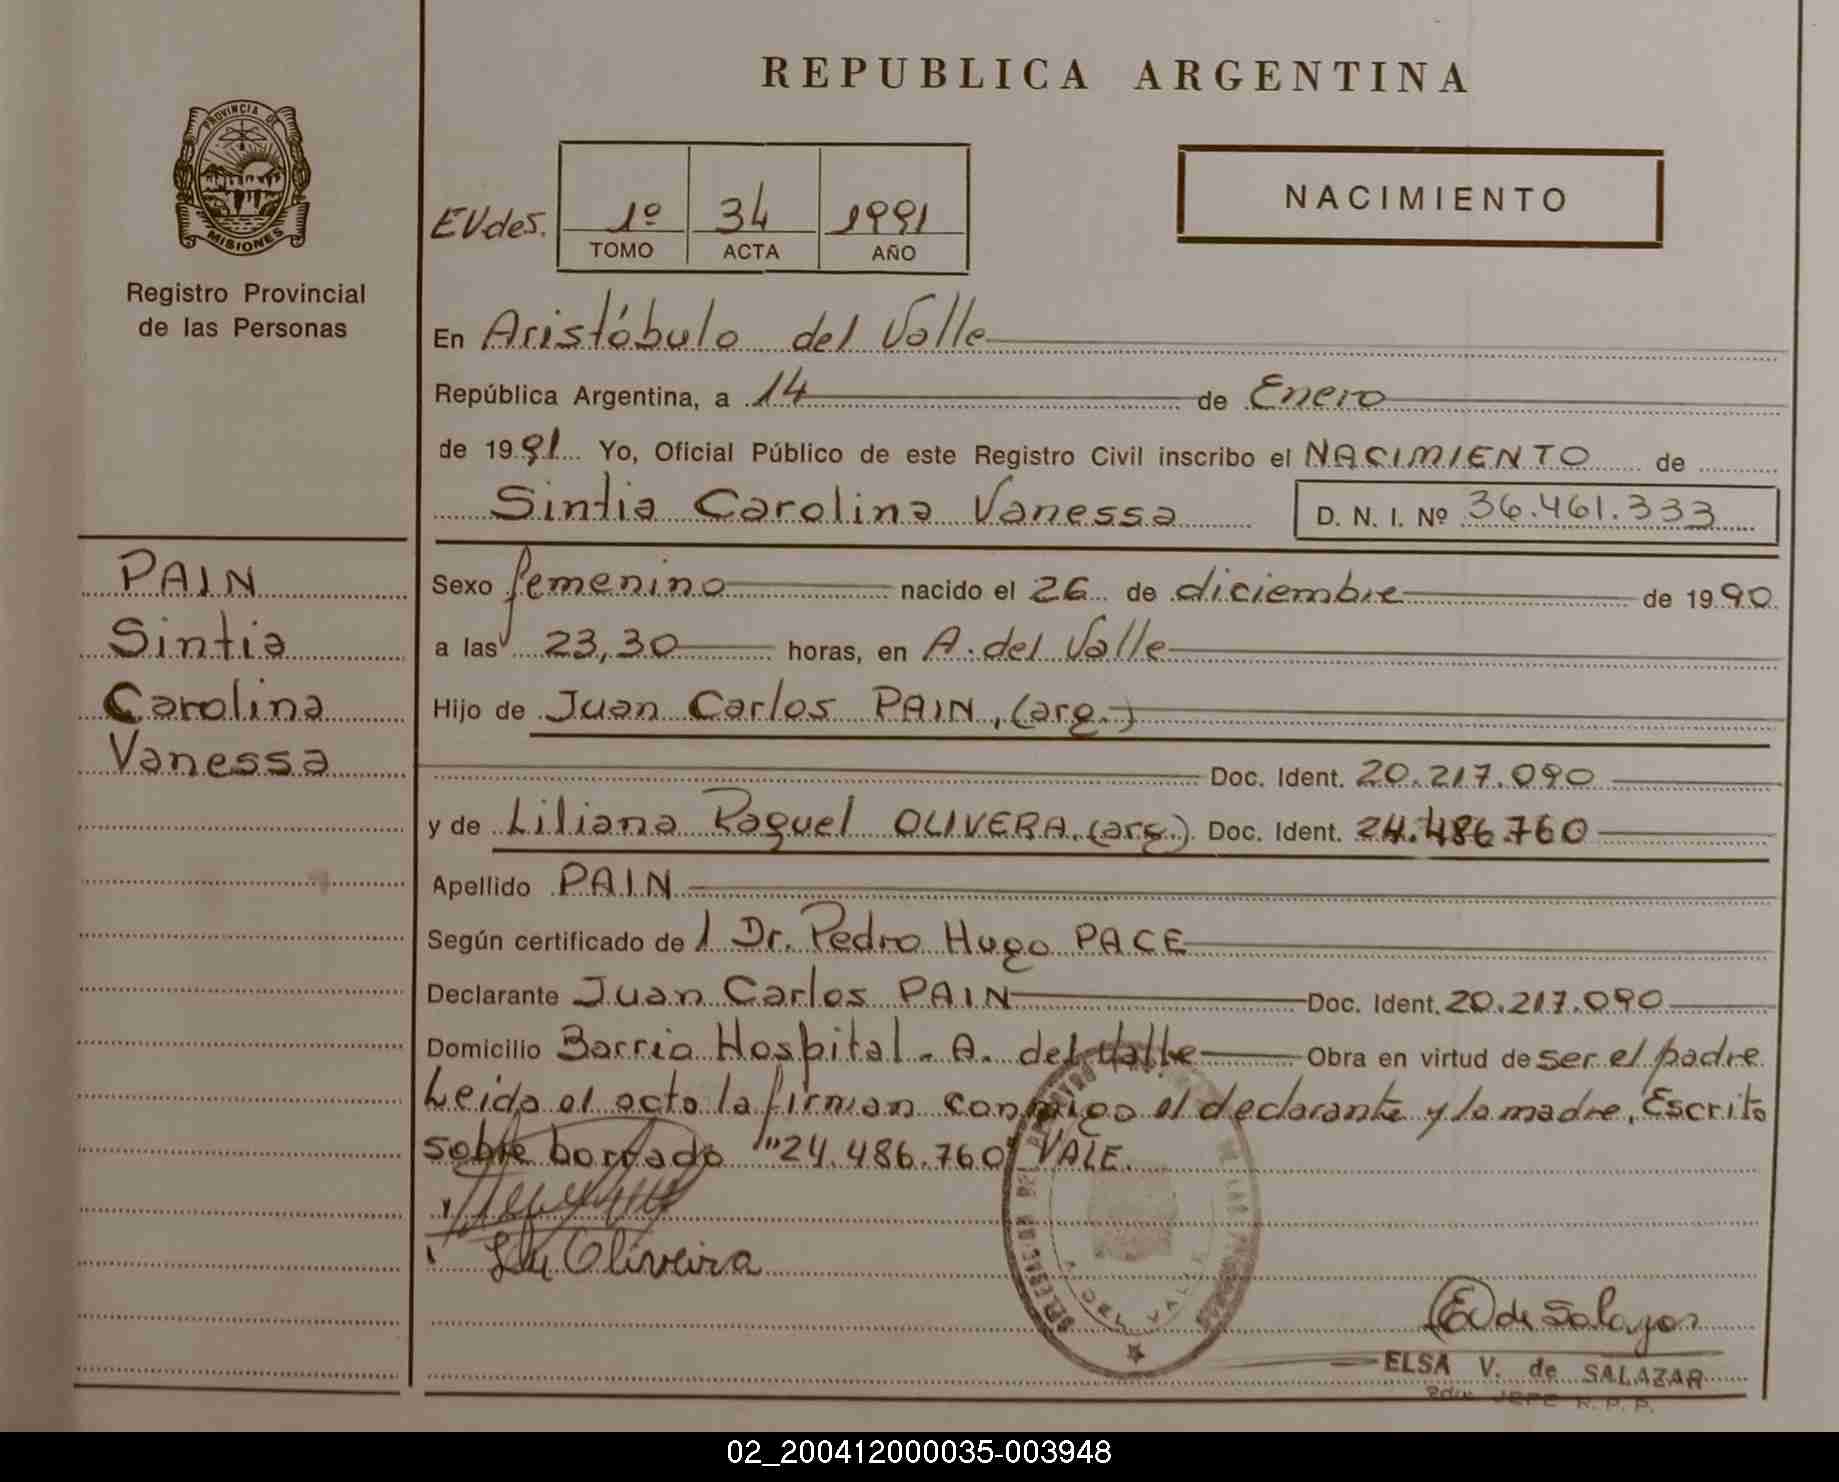 REPUBLICA ARGENTINA
PROVINCIA DE
MISIONES
Registro Provincial
de las Personas
NACIMIENTO
EVdeS. 1º 34 1991
TOMO ACTA AÑO
En Aristóbulo del Valle
República Argentina, a 14 de Enero
de 1991 Yo, Oficial Público de este Registro Civil inscribo el NACIMIENTO de
Sintia Carolina Vanessa D. N. I. Nº 36.461.333
PAIN
Sintia
Carolina
Vanessa
Sexo femenino nacido el 26 de diciembre de 1990
a las 23,30 horas, en A. del Valle
Hijo de Juan Carlos PAIN, (arg.)
Doc. Ident. 20.217.090
y de Liliana Raquel OLIVERA (arg.) Doc. Ident. 24.486.760
Apellido PAIN
Según certificado de l Dr. Pedro Hugo PACE
Declarante Juan Carlos PAIN Doc. Ident. 20.217.090
Domicilio Barrio Hospital - A. del Valle Obra en virtud de ser el padre
Leida el acta la firman conmigo el declarante y la madre. Escrito
sobre borrado "24.486.760" VALE.
Oliveira
E V de Salazar
ELSA V. de SALAZAR
JEFE R.P.P.
02_200412000035-003948